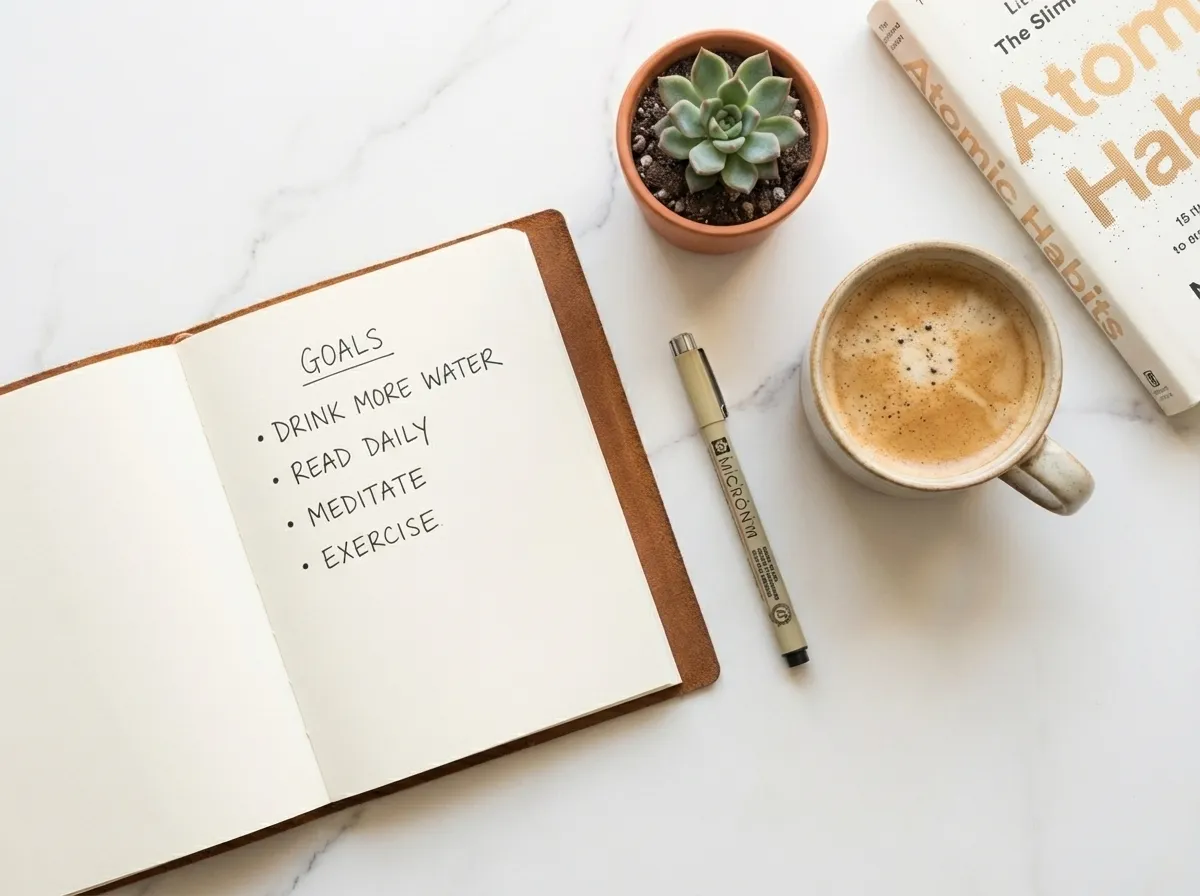 GOALS
• DRINK MORE WATER
• READ DAILY
• MEDITATE
• EXERCISE
MICRON
The Slim
Atom
Hab
15 
to
Atomic Habits